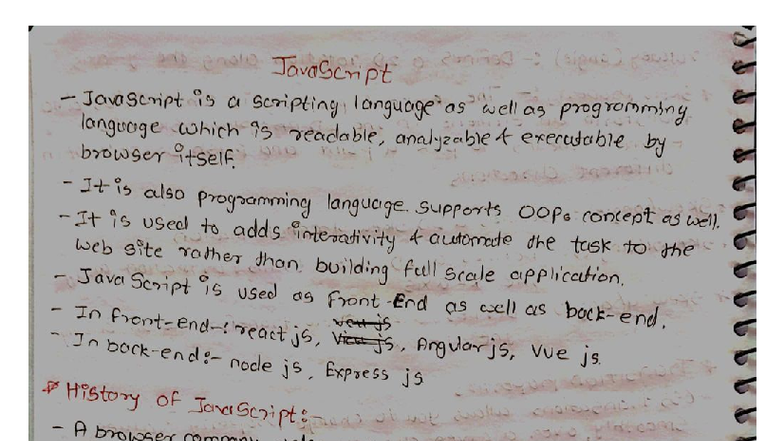 JavaScript
- JavaScript is a scripting language as well as programming
language which is readable, analyzable & executable by
browser itself.
- It is also programming language supports OOPs concept as well.
- It is used to adds interactivity & automate the task to the
web site rather than building full scale application.
- JavaScript is used as front-End as well as back-end.
- In front-end-: react js, Angular js, Vue js.
- In back-end:- node js, Express js
* History of JavaScript:-
- A browser company